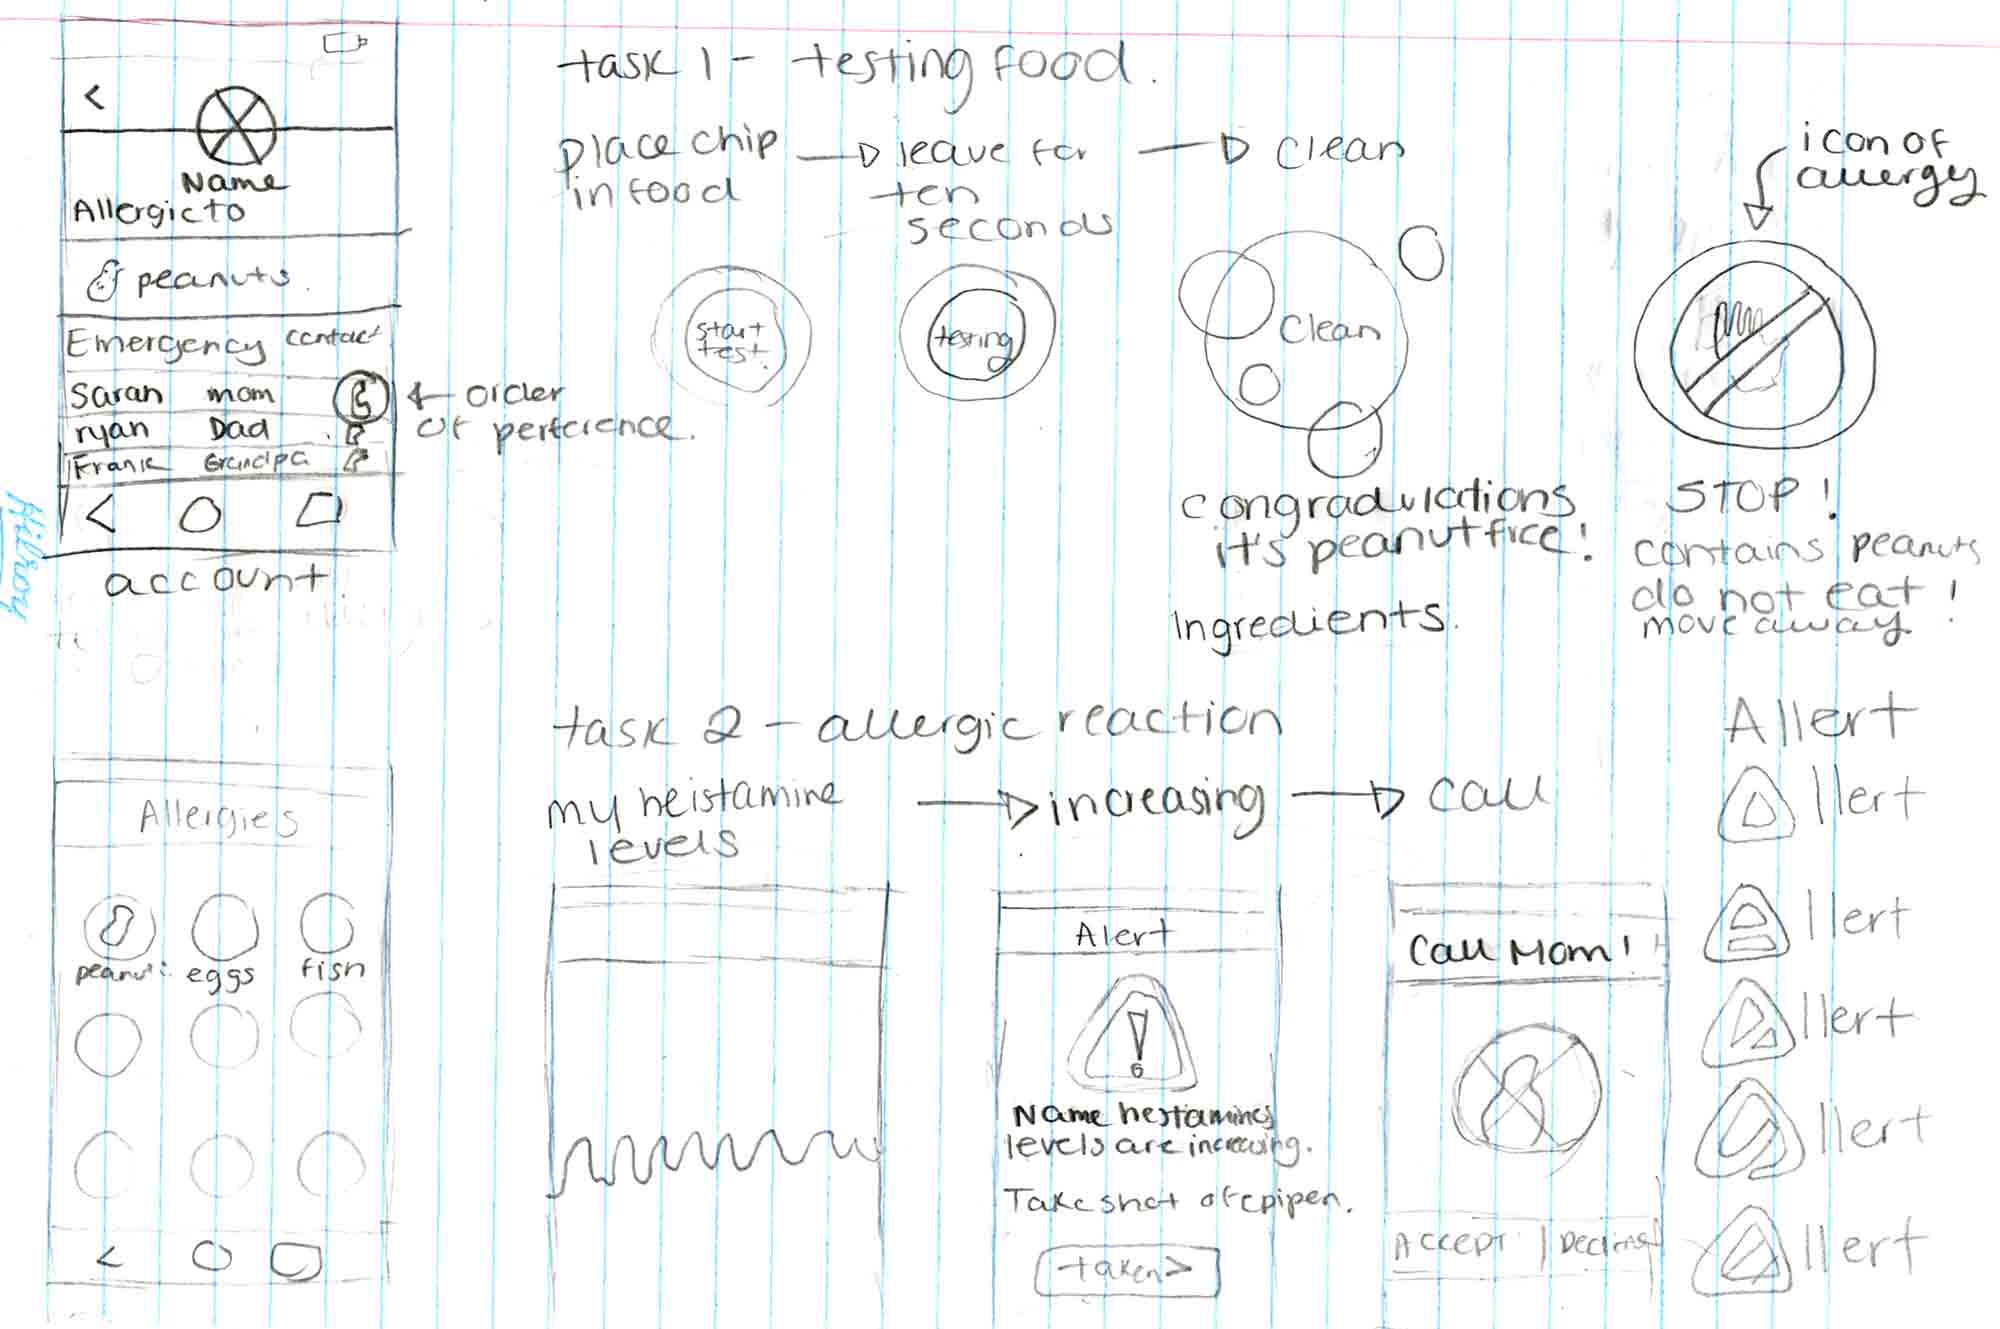 <
Name
Allergic to
peanuts.
Emergency contact
Sarah mom
ryan Dad
Frank Grandpa
← order
of perference.
account.
task 1 - testing food.
place chip
in food
leave for
ten
seconds
clean
start
test.
testing
Clean
congradulations
it's peanut free!
Ingredients.
icon of
allergy
STOP!
contains peanuts
do not eat!
move away
Allergies
peanut
eggs
fish
<
task 2 - allergic reaction
my heistamine
levels
increasing
call
Alert
!
Name hestamines
levels are increasing.
Take shot of epipen.
taken >
Call Mom!
ACCEPT | Decline
Allert
llert
llert
llert
llert
llert